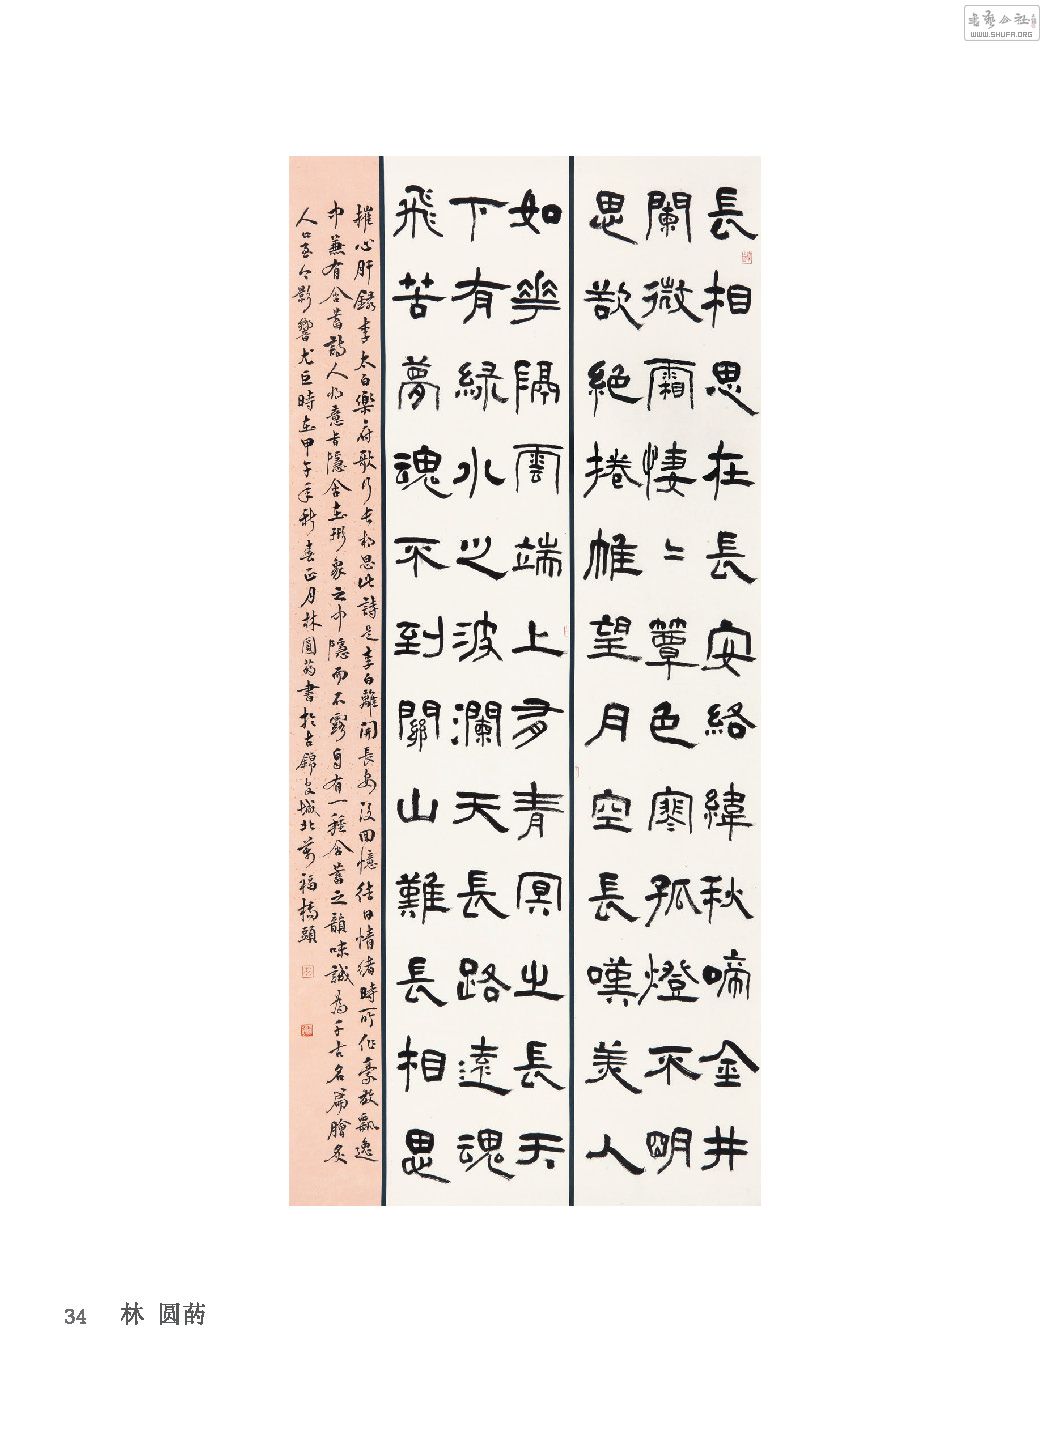 長相思在長安絡緯秋啼金井
闌微霜悽〻簟色寒孤燈不明
思欲絕捲帷望月空長嘆美人
如華隔雲端上有青冥之長天
下有綠水之波瀾天長路遠魂
飛苦夢魂不到關山難長相思
摧心肝錄李太白樂府歌行長相思此詩是李白離開長安後回憶往日情緒時所作豪放飄逸
中兼有含蓄詩人將意旨隱含在形象之中隱而不露自有一種含蓄之韻味誠為千古名篇膾炙
人口至今影響尤巨時在甲午年新春正月林圓菂書於古錦官城北萬福橋頭
34 林 圆菂
书艺公社
WWW.SHUFA.ORG